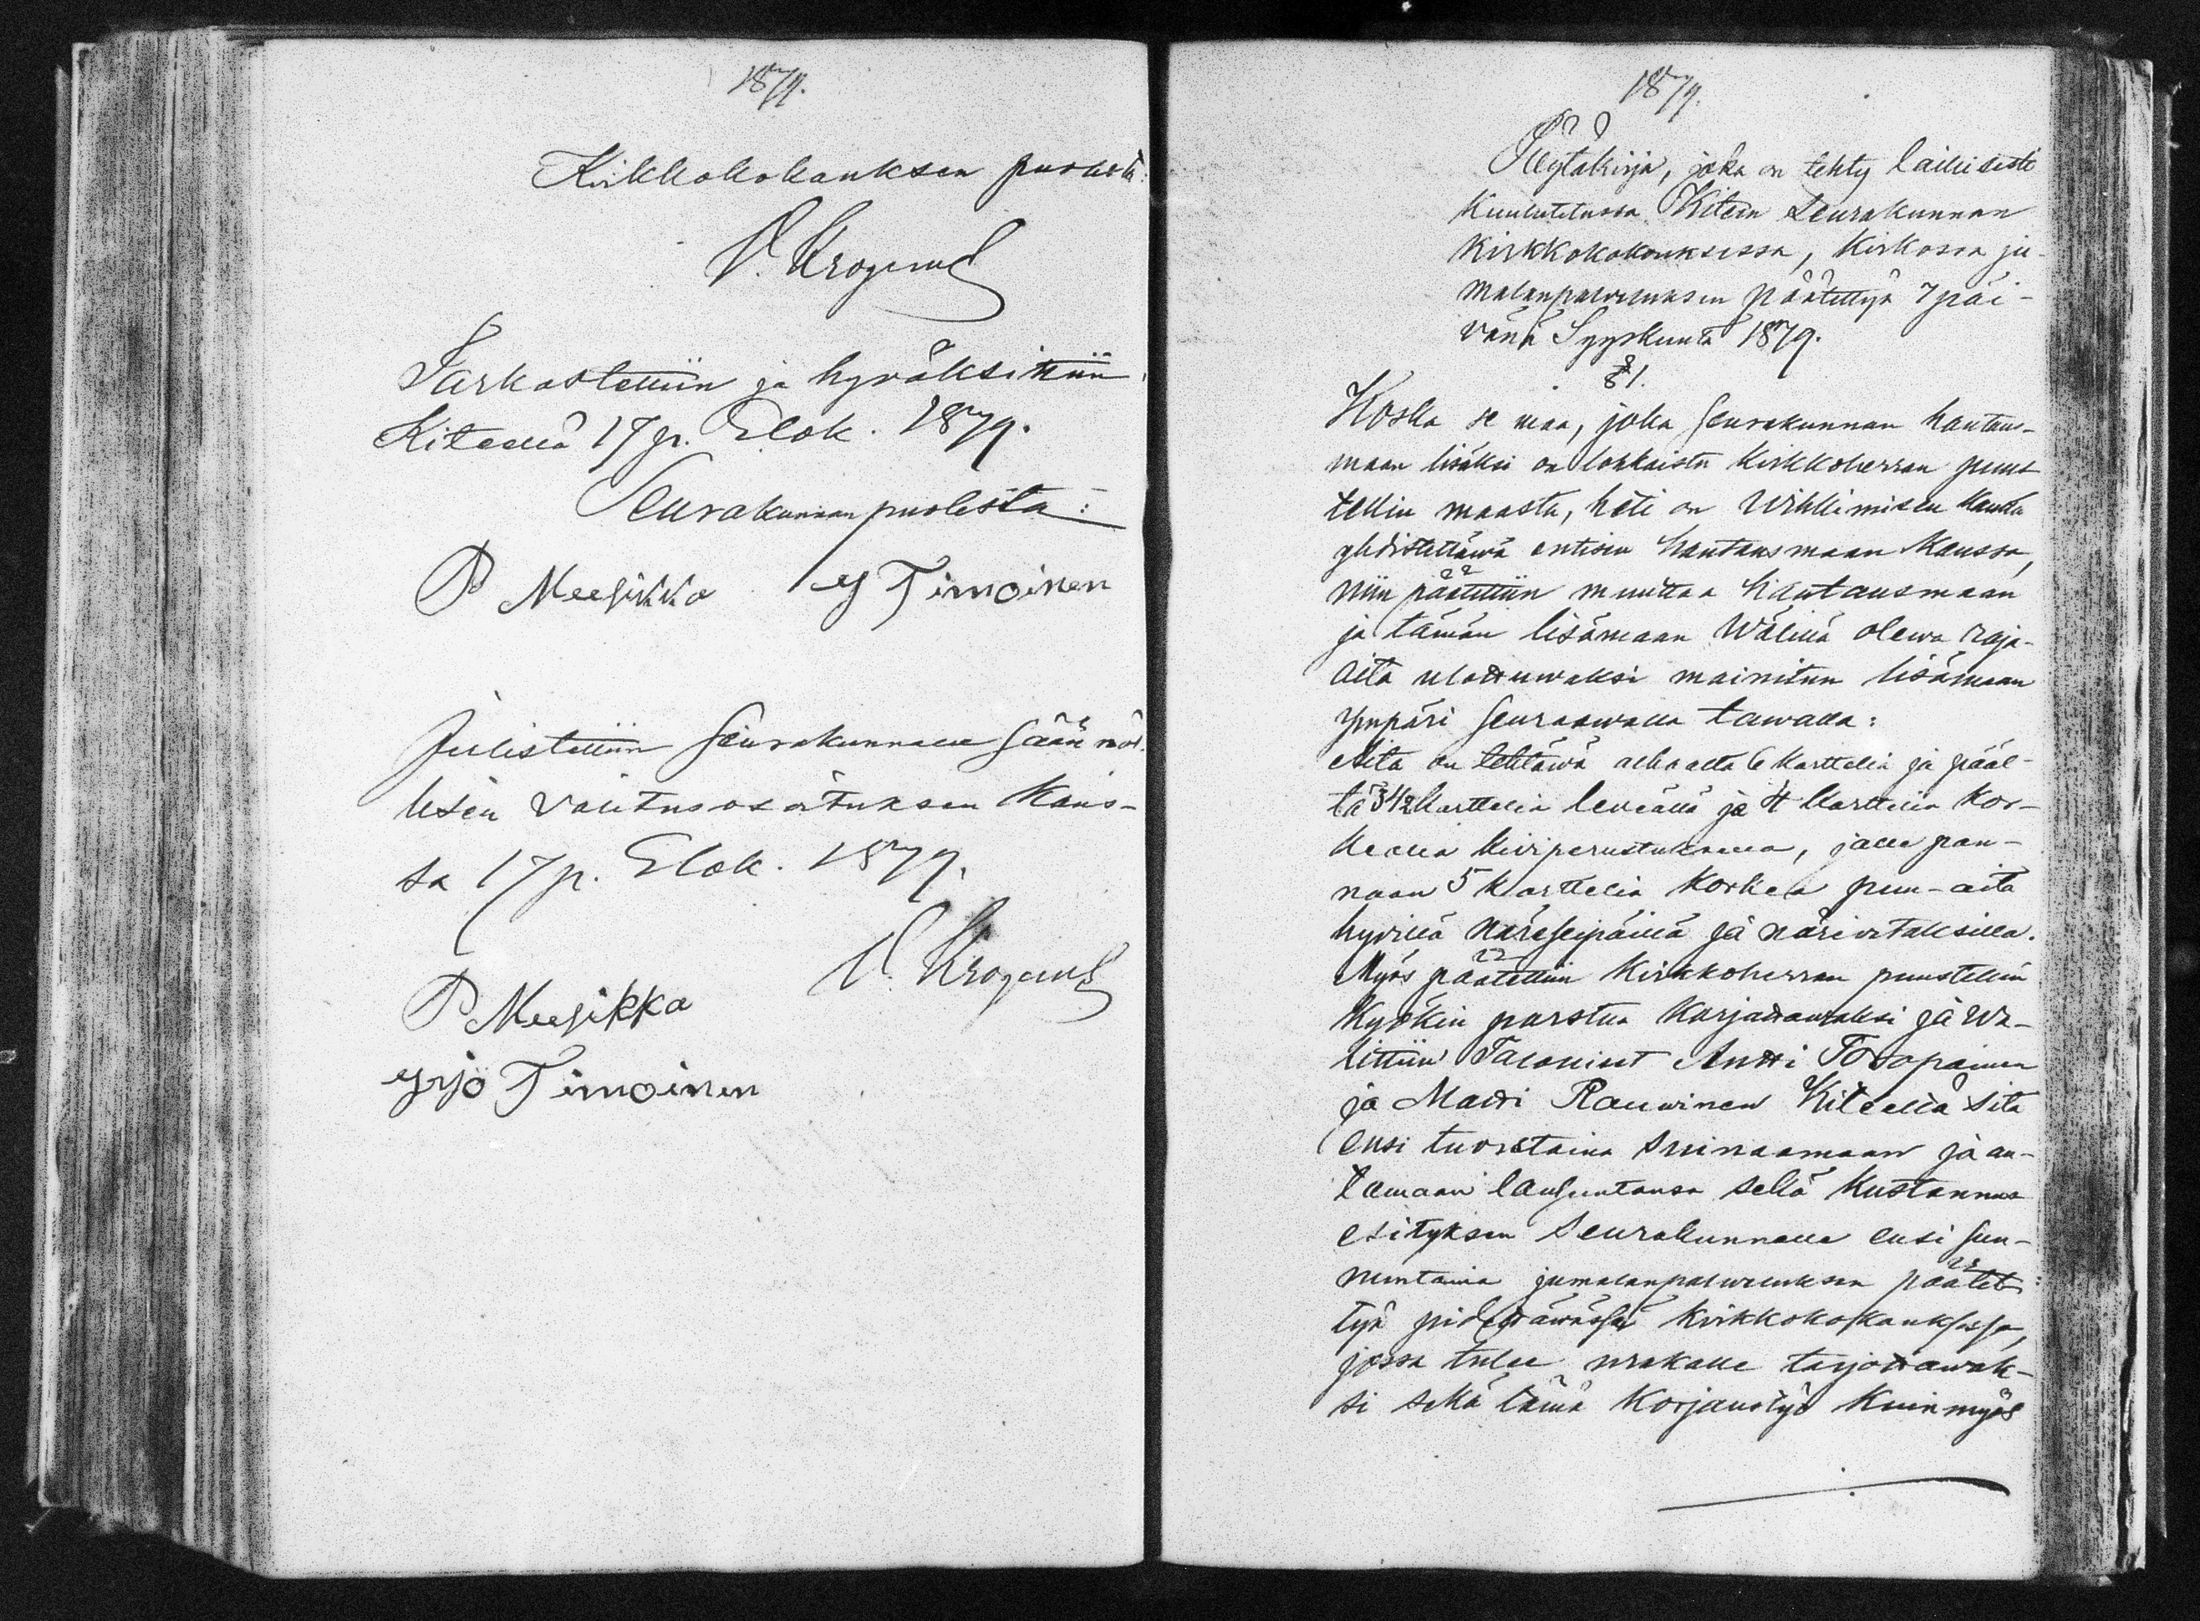 1879.
Kirkkokokouksen puolesta:
V. Krogerus
Tarkastettiin ja hyväksittiin
Kiteellä 17 p. Elok. 1879.
Seurakunnan puolesta:
P Meesikka Y Timoinen
Julistettiin Seurakunnalle säännöl-
lisen valitusosoituksen kans-
sa 17 p. Elok. 1879.
V. Krogerus
P Meesikka
Yrjö Timoinen
1879.
Pöytäkirja, joka on tehty laillisesti
kuulutetussa Kiteen Seurakunnan
kirkkokokouksessa, kirkossa ju-
malanpalveluksen päätettyä 7 päi-
vänä Syyskuuta 1879.
§ 1.
Koska se maa, joka seurakunnan hautaus-
maan lisäksi on lohkaistu kirkkoherran puus
tellin maasta, heti on wihkimisen kautta
yhdistettäwä entisen hautausmaan kanssa,
niin päätettiin muuttaa hautausmaan
ja tämän lisämaan wälillä olewa raja-
aita ulottuwaksi mainitun lisämaan
ympäri seuraawalla tawalla:
Aita on tehtäwä alhaalta 6 karttelia ja pääl-
tä 3 1/2 karttelia leweällä ja 4 karttelia kor-
kealla kiviperustuksella, jalle pan-
naan 5 karttelia korkea puu-aita
hyvillä näreseipäillä ja närevitaksilla.
Myös päätettiin kirkkoherran puustellin
kyökin porstua korjattawaksi ja wa-
littiin Talolliset Antti Toropainen
ja Matti Rauwinen Kiteellä sitä
ensi tuorstaina syynäämään ja an-
tamaan lausuntonsa sekä kustannus
esityksen Seurakunnalle ensi sun-
nuntaina jumalanpalweluksen päätet-
tyä pidettäwässä kirkkokokouksessa,
jossa tulee urakalle tarjottawak-
si sekä tämä korjaustyö kuin myös